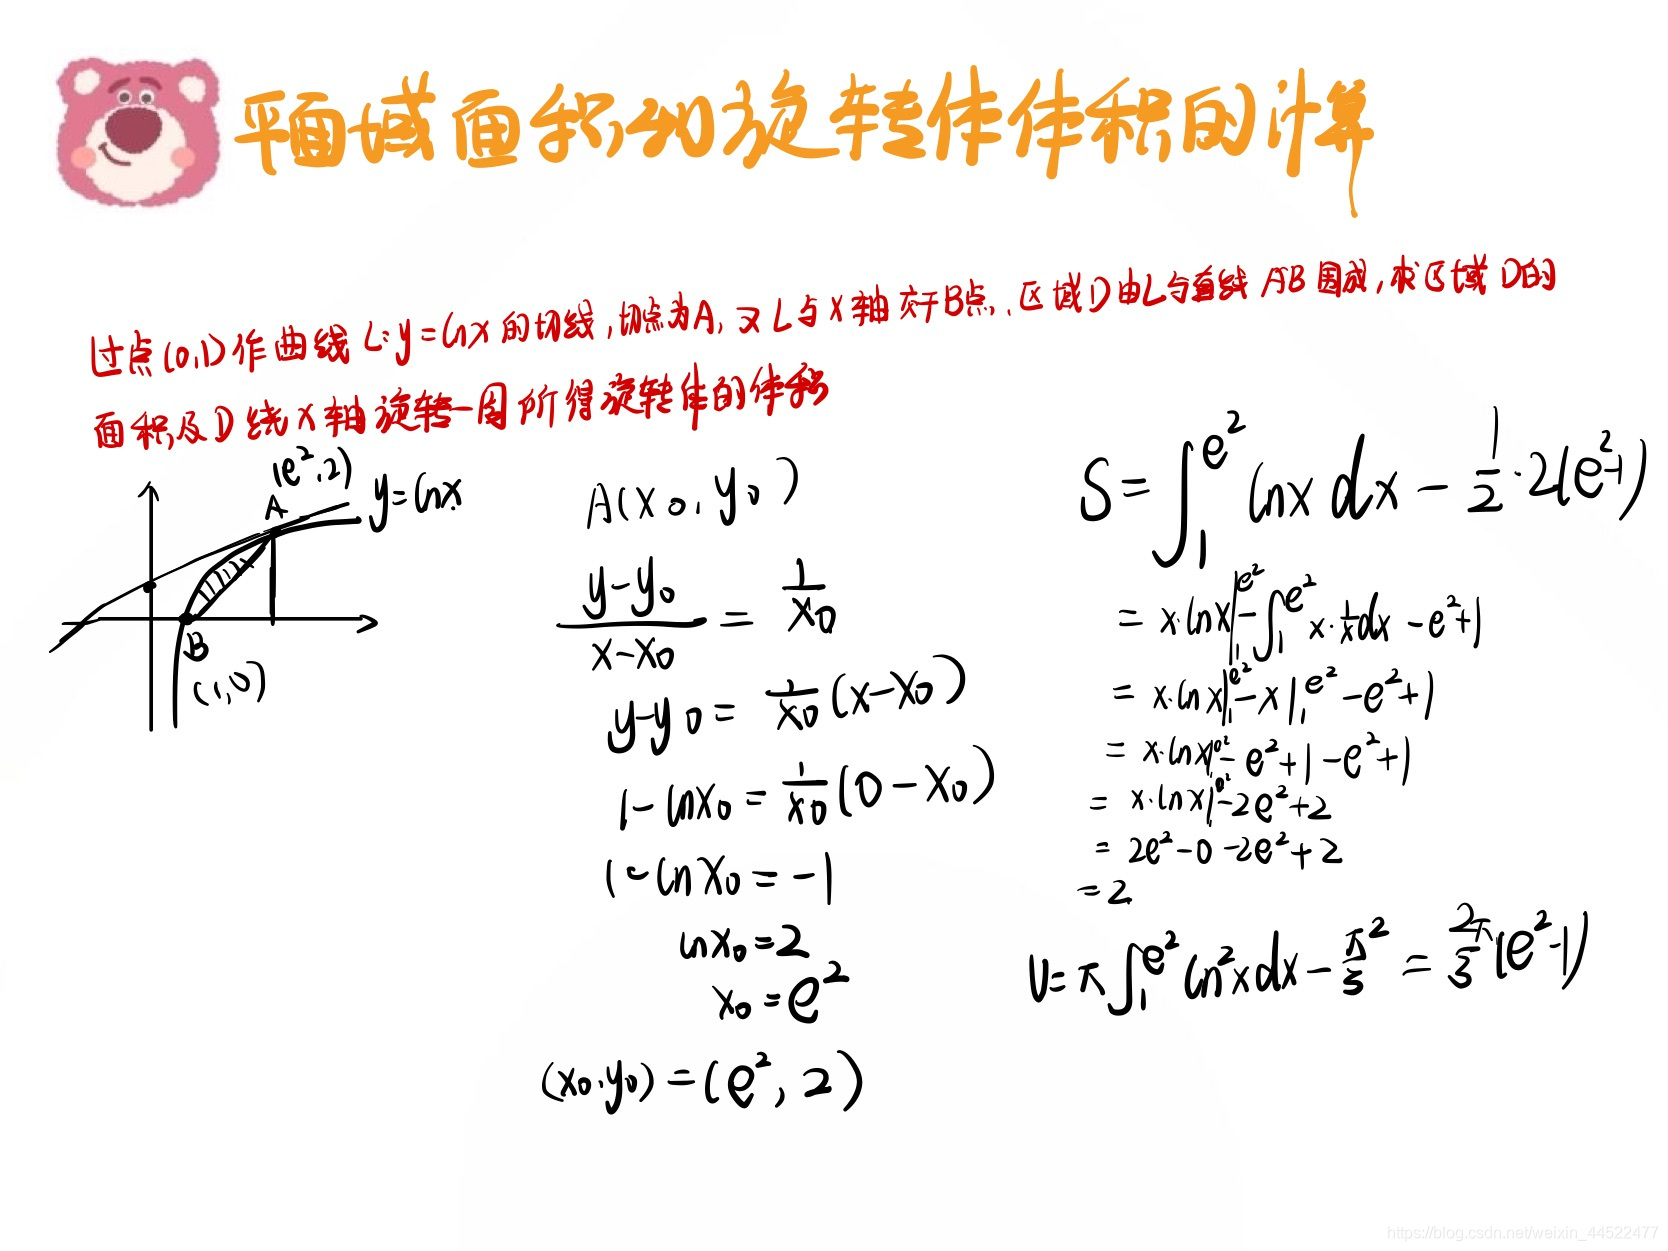 平面域面积和旋转体体积的计算
过点(0,1)作曲线L:y=lnx的切线,切点为A,又L与X轴交于B点,区域D由L与直线AB围成,求区域D的
面积及D绕X轴旋转一周所得旋转体的体积
(e²,2)
A
y=lnx
B
(1,0)
A(x₀,y₀)
(y-y₀)/(x-x₀) = 1/x₀
y-y₀ = 1/x₀(x-x₀)
1-lnx₀ = 1/x₀(0-x₀)
1-lnx₀=-1
lnx₀=2
x₀=e²
(x₀,y₀)=(e²,2)
S=∫₁^e² lnx dx - 1/2·2(e²-1)
= x·lnx|₁^e² - ∫₁^e² x·1/x dx - e²+1
= x·lnx|₁^e² - x|₁^e² - e²+1
= x·lnx|₁^e² - e²+1-e²+1
= x·lnx|₁^e² - 2e²+2
= 2e²-0-2e²+2
=2
V=π∫₁^e² ln²x dx - = 2π/3(e²-1)
https://blog.csdn.net/weixin_44522477